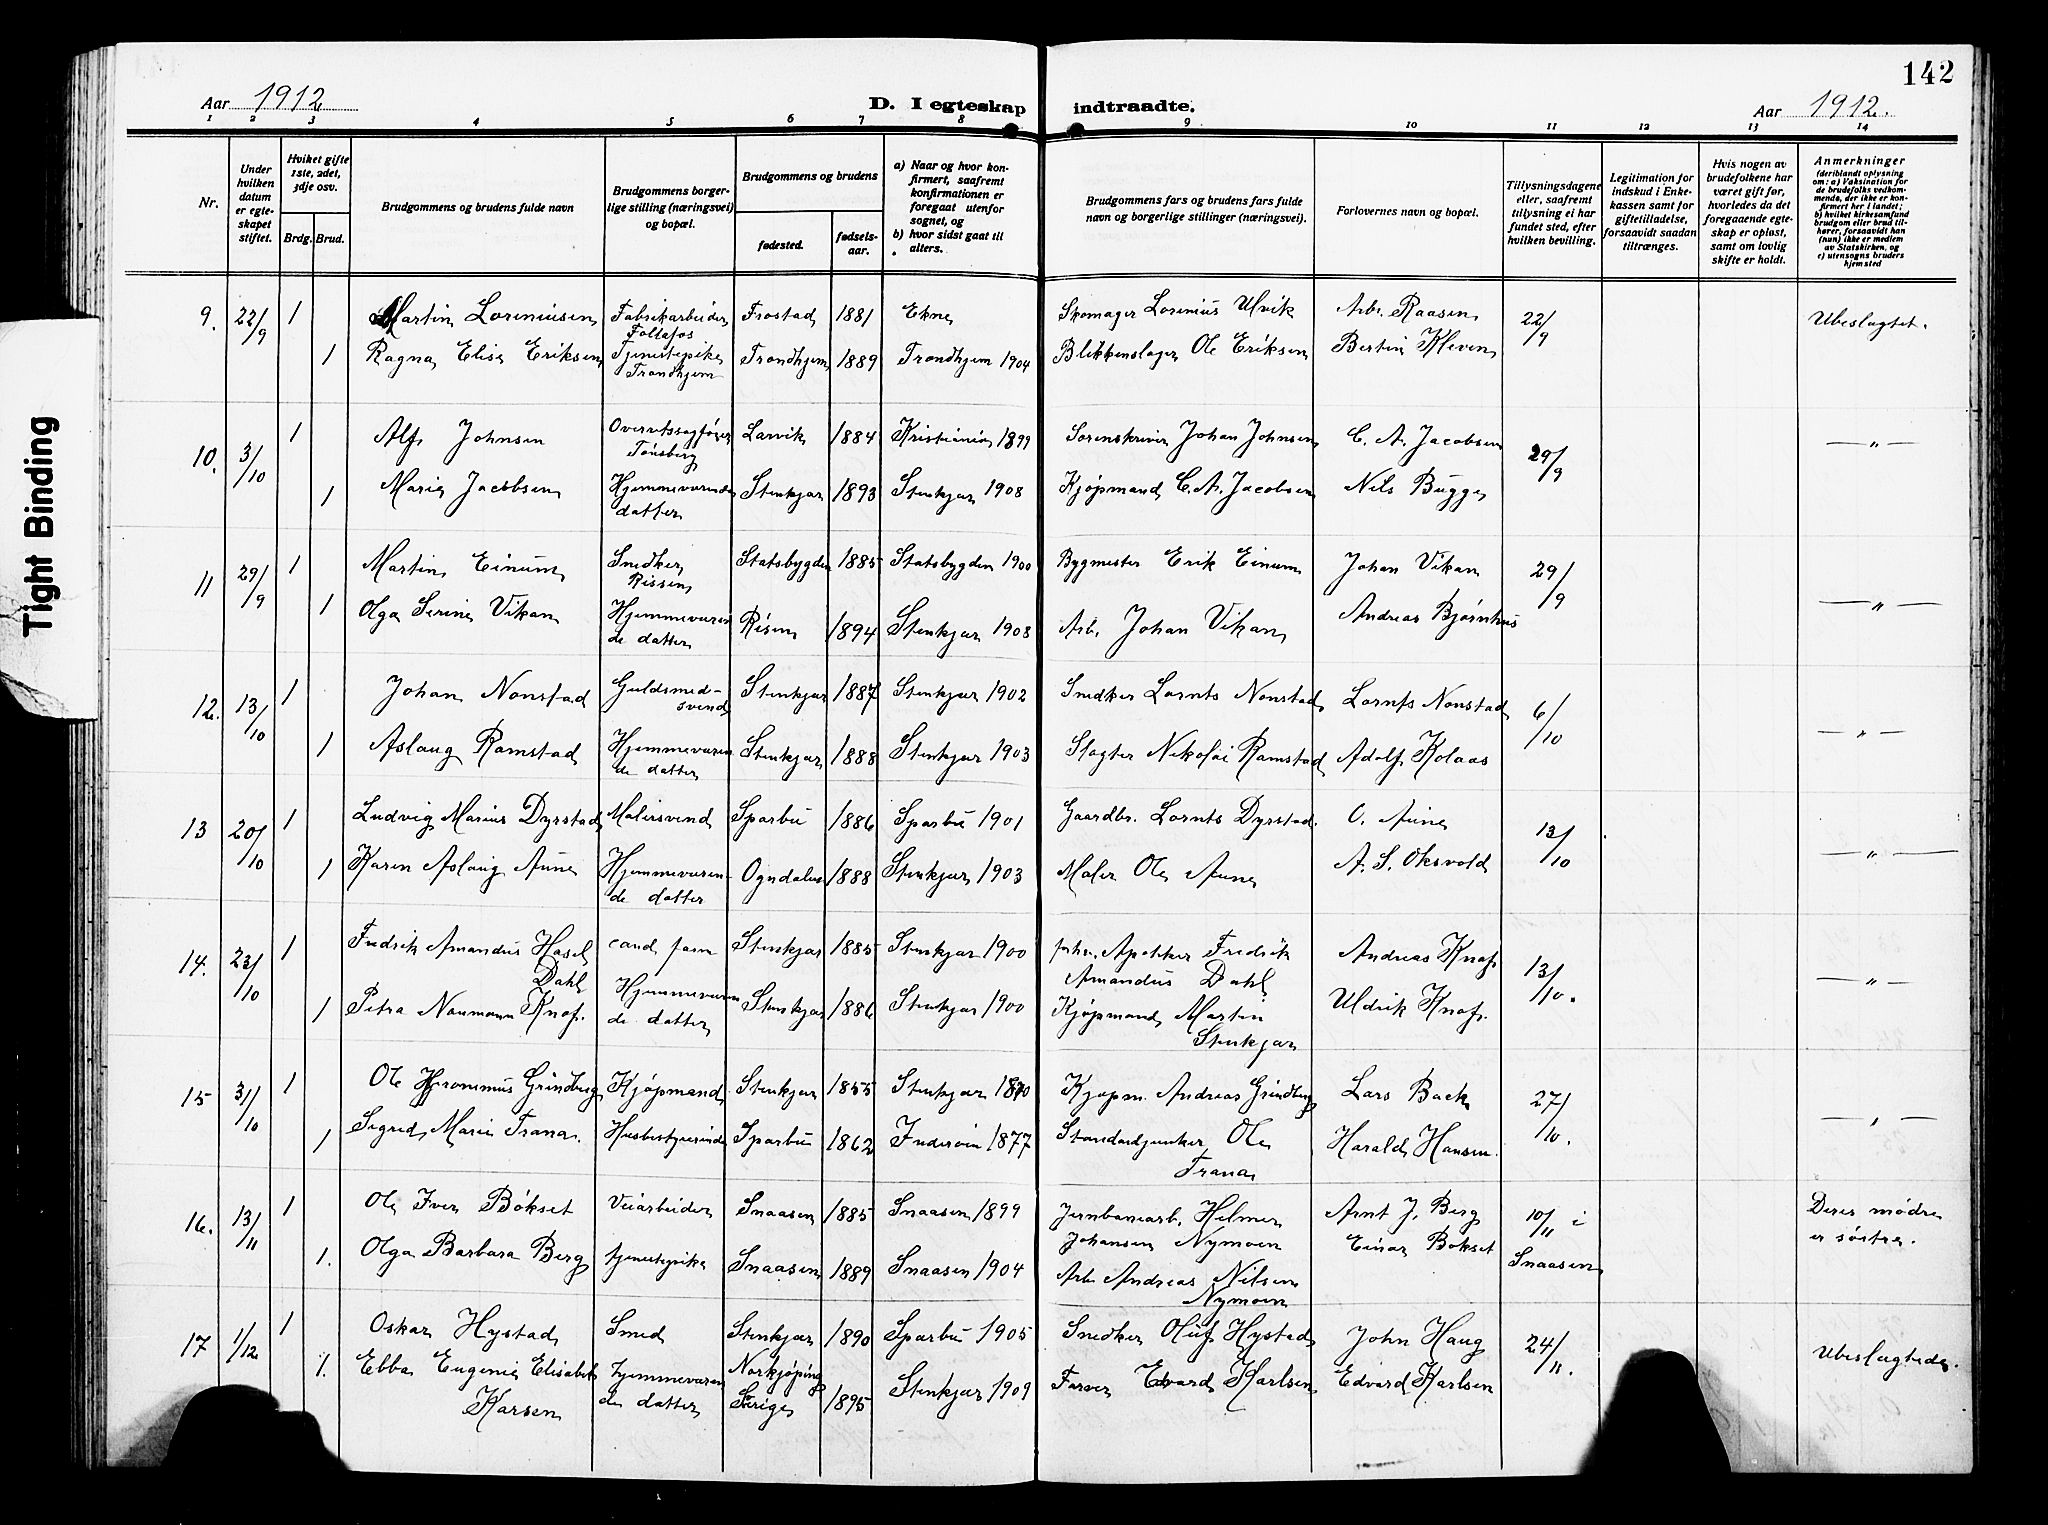 142
Aar 1912
D. I egteskap indtraadte.
Aar 1912.
1 2 3 4 5 6 7 8 9 10 11 12 13 14
Nr.
Under hvilken datum er egteskapet stiftet.
Hviket gifte 1ste, 2det, 3dje osv.
Brdg. Brud.
Brudgommens og brudens fulde navn
Brudgommens borgerlige stilling (næringsvei) og bopæl.
Brudgommens og brudens
fødested.
fødselsaar.
a) Naar og hvor konfirmert, saafremt konfirmationen er foregaat utenfor sognet, og
b) hvor sidst gaat til alters.
Brudgommens fars og brudens fars fulde navn og borgerlige stillinger (næringsvei).
Forlovernes navn og bopæl.
Tillysningsdagene eller, saafremt tillysning ei har fundet sted, efter hvilken bevilling.
Legitimation for indskud i Enkekassen samt for giftetilladelse, forsaavidt saadan tiltrænges.
Hvis nogen av brudefolkene har været gift før, hvorledes da det foregaaende egteskap er opløst, samt om lovlig skifte er holdt.
Anmerkninger (deriblandt oplysning om: a) Vaksination for de brudefolks vedkommende, der ikke er konfirmert her i landet; b) hvilket kirkesamfund brudgom eller brud tilhører, forsaavidt han (hun) ikke er medlem av Statskirken, og c) utensogns bruders hjemsted
9. 22/9 1 Martin Loreniusen Fabrikarbeider Follafos Frostad 1881 Ekne Skomager Lorenius Ulvik Arb. Raasen 22/9 Ubeslegtet.
1 Ragna Elise Eriksen Tjenestepike Trondhjem Trondhjem 1889 Trondhjem 1904 Blikkenslager Ole Eriksen Bertin Kleven
10. 3/10 1 Alf Johnsen Overretssagfører Tønsberg Larvik 1884 Kristiania 1899 Sorenskriver Johan Johnsen C. A. Jacobsen 29/9 — " —
1 Marie Jacobsen Hjemmeværende datter Stenkjær 1893 Stenkjær 1908 Kjøpmand C. A. Jacobsen Nils Bugge
11 29/9 1 Martin Einum Snedker Rissen Statsbygden 1885 Statsbygden 1900 Bygmester Erik Einum Johan Vikan 29/9 — " —
1 Olga Serine Vikan Hjemmeværende datter Risen 1894 Stenkjær 1908 Arb. Johan Vikan Andreas Bjørnhus
12. 13/10 1 Johan Nonstad Guldsmedsvend Stenkjær 1887 Stenkjær 1902 Snedker Lornts Nonstad Lornts Nonstad 6/10 — " —
1 Aslaug Ramstad Hjemmeværende datter Stenkjær 1888 Stenkjær 1903 Slagter Nikolai Ramstad Adolf Kolaas
13 20/10 1 Ludvig Marius Dyrstad Malersvend Sparbu 1886 Sparbu 1901 Gaardbr. Lornts Dyrstad. O. Aune 13/10 — " —
1 Karen Aslaug Aune Hjemmeværende datter Ogndalen 1888 Stenkjær 1903 Maler Ole Aune A. S. Oksvold
14. 23/10 1 Fredrik Amandus Hasel Dahl cand farm Stenkjær 1885 Stenkjær 1900 forhv. Apotheker Fredrik Amandus Dahl Andreas Knof 13/10. — " —
1 Petra Naumann Knof. Hjemmeværende datter Stenkjær 1886 Stenkjær 1900 Kjøpmand Martin Stenkjær Uldrik Knof.
15 31/10 1 Ole Hjeronimus Grindberg Kjøpmand Stenkjær 1855 Stenkjær 1870 Kjøpm. Andreas Grindberg Lars Bach 27/10. — " —
1 Sigrid Marie Trana. Husbestyrerinde Sparbu 1862 Inderøen 1877 Standardjunker Ole Trana Harald Hansen.
16. 13/11 1 Ole Iver Bøkset Veiarbeider Snaasen 1885 Snaasen 1899 Jernbanearb. Helmer Johansen Nymoen Arnt J. Berg 10/11 i Snaasen Deres mødre er søstre.
1. Olga Barbara Berg tjenestepike Snaasen 1889 Snaasen 1904 Arb Andreas Nilsen Nymoen Einar Bøkset
17 1/12 1 Oskar Hystad Smed Stenkjær 1890 Sparbu 1905 Snedker Oluf Hystad John Haug 24/11. Ubeslegtede.
1. Ebba Eugenie Elisabet Karsen hjemmeværende datter Norkjøping Sverige 1895 Stenkjær 1909 Farver Edvard Karlsen Edvard Karlsen
Tight Binding